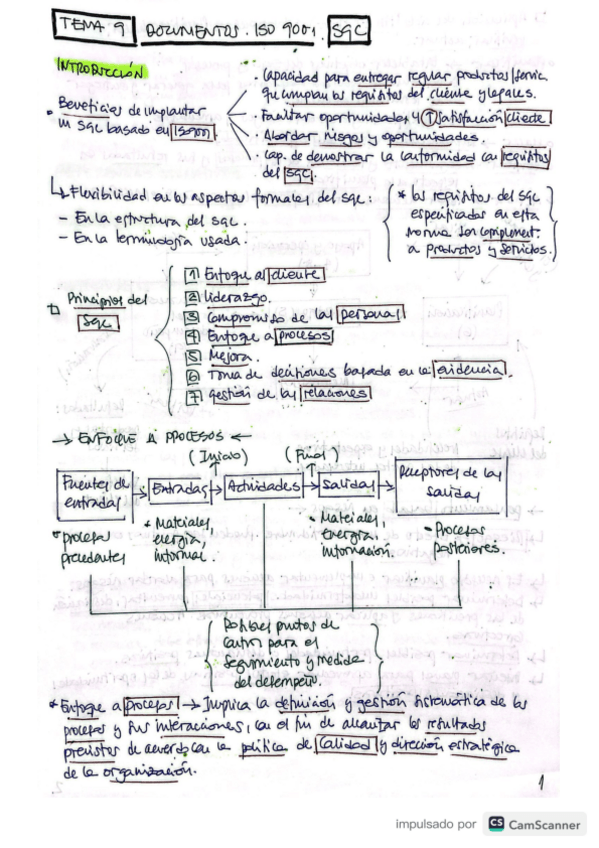 TEMA 9 DOCUMENTOS. ISO 9001. SGC
INTRODUCCIÓN
· Beneficios de implantar
un SGC basado en ISO9001
· Capacidad para entregar regular productos/servic.
que cumplan los requisitos del cliente y legales.
· Facilitar oportunidades y ↑ satisfacción cliente
· Abordar riesgos y oportunidades
· Cap. de demostrar la conformidad con requisitos
del SGC.
↳ Flexibilidad en los aspectos formales del SGC:
- En la estructura del SGC.
- En la terminología usada.
* los requisitos del SGC
especificados en esta
norma son complement.
a productos y servicios.
Principios del
SGC
1 Enfoque al cliente
2 liderazgo.
3 Compromiso de las personas
4 Enfoque a procesos
5 Mejora.
6 Toma de decisiones basada en la evidencia.
7 gestión de las relaciones
→ ENFOQUE A PROCESOS ←
(Inicio) (Final)
Fuentes de
entradas
Entradas
Actividades
Salidas
Receptores de las
salidas
* procesos
precedentes
* Materiales,
energía,
informac.
* Materiales,
energía,
información.
· Procesos
posteriores.
Posibles puntos de
control para el
seguimiento y medida
del desempeño.
* Enfoque a procesos → Implica la definición y gestión sistemática de los
procesos y sus interacciones, con el fin de alcanzar los resultados
previstos de acuerdo con la política de calidad y dirección estratégica
de la organización.
1
impulsado por CS CamScanner